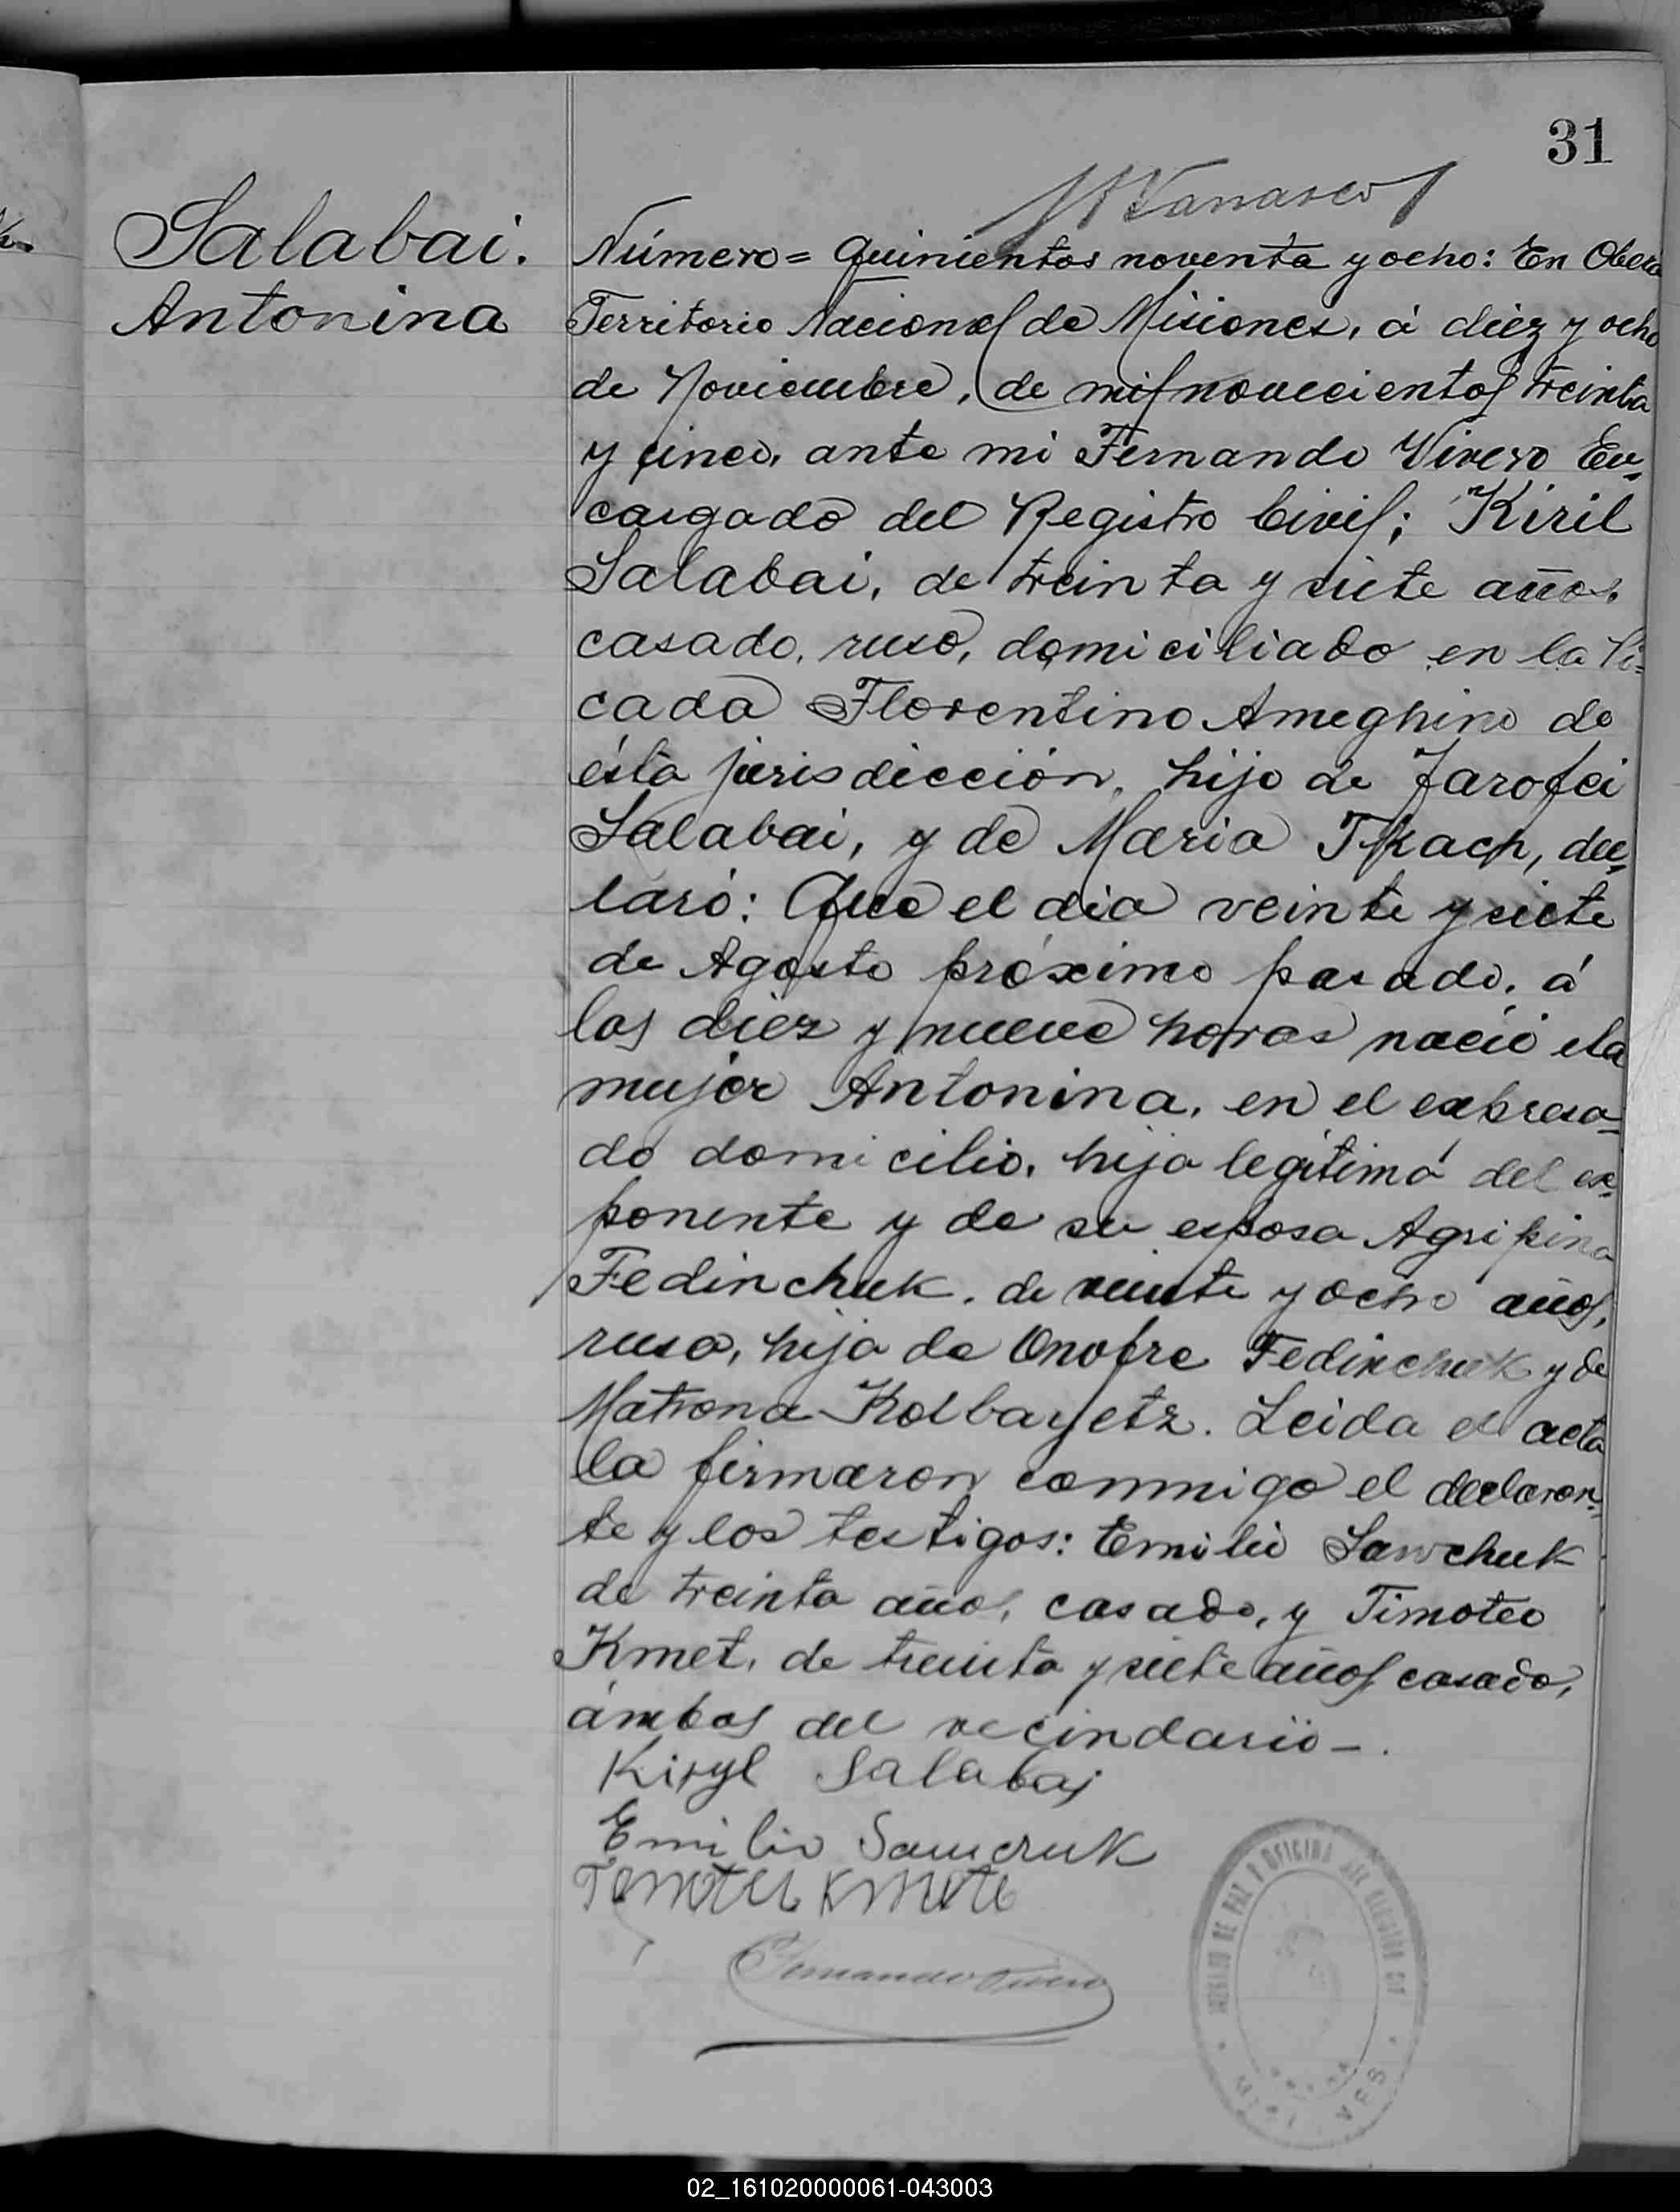 31
Salabai.
Antonina
Número = Quinientos noventa y ocho: En Oberá
Territorio Nacional de Misiones, á diez y ocho
de Noviembre, de mil novecientos treinta
y cinco, ante mi Fernando Vivero En-
cargado del Registro Civil; Kiril
Salabai, de treinta y siete años,
casado, ruso, domiciliado en la Pi-
cada Florentino Ameghino de
ésta jurisdicción, hijo de Jarofei
Salabai, y de Maria Tkach, dec-
laró: Que el dia veinte y siete
de Agosto próximo pasado, á
las diez y nueve horas nació la
mujer Antonina, en el expresa-
do domicilio, hija legítima del ex-
ponente y de su esposa Agripina
Fedinchuk, de veinte y ocho años,
rusa, hija de Onofre Fedinchuk y de
Matrona Kolbayetz. Leida el acta
la firmaron conmigo el declaran-
te y los testigos: Emilio Sawchuk
de treinta años, casado, y Timoteo
Kmet, de treinta y siete años casado,
ámbos del vecindario -.
Kiryl Salabaj
Emilio Sawczuk
Kmete
Fernando Vivero
JUZGADO DE PAZ Y OFICINA DEL REGISTRO CIVIL
02_161020000061-043003